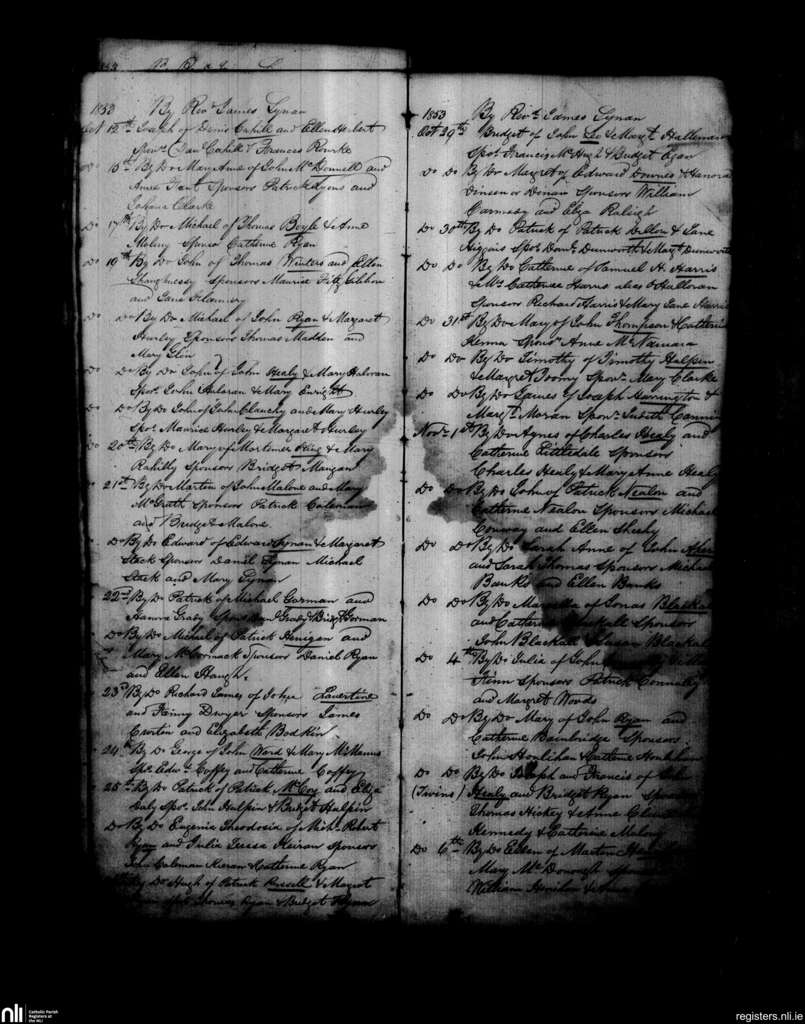 1853 By Revd. James Lynan
Oct 12th Joseph of Denis Cahill and Ellen Herbert
Spors. Dan Cahill & Frances Rourke
Do 15th By Do Mary Anne of John McDonnell and
Anne Sponsors Patrick Lyons and
Johana Clarke
Do 17th By Do Michael of Thomas Boyle & Anne
Melny sponsor Catherine Ryan
Do 19th By Do John of Thomas Winters and Ellen
Shaughnessy Sponsors Maurice Fitz Gibbon
and Jane Flannery
Do Do By Do Michael of John Ryan & Margaret
Hurly Sponsors Thomas Madden and
Mary Glin
Do Do By Do of John Healy & Mary Haloran
Spors. John Haloran & Mary Enright
Do Do By Do John of John Clanchy and Mary Hurley
Spors. Maurice Hurley & Margaret Hurley
Do 20th By Do Mary of Mortimer & Mary
Rahilly Sponsors Bridget Mangan
21st By Do Martin of John Malone and Mary
McGrath Sponsors Patrick Coleman
and Bridget Malone
Do By Do Edward of Edward Lynan & Margaret
Stack Sponsors Daniel Lynan Michael
Stack and Mary Lynan
22nd By Do Patrick of Michael Gorman and
Hanora Grady Grady & Bridgt Gorman
Do By Do Michael of Patrick Henigan and
Mary McCormack Sponsors Daniel Ryan
and Ellen Haugh
23rd By Do Richard James of John Lavertine
and Fanny Dwyer Sponsors James
Curtin and Elizabeth Bodkin
24th By Do George of John Word & Mary McManus
Spors. Edwd. Coffey and Catherine Coffey
25th By Do Patrick of Patrick McCoy and Eliza
Daly Spors. John Halpin & Bridget Halpin
Do By Do Eugenia Theodosia of Michl. Robert
Ryan and Julia Teresa Keiran Sponsors
John Coleman Keiran & Catherine Ryan
By Do Hugh of Patrick Russell & Margret
Spors Thomas Ryan & Bridget Ryan
1853 By Revd. James Lynan
Oct 29th Bridget of John Leo & Margt. Halloran
Spors. Francis McHugh & Bridget Ryan
Do Do By Do Margret of Edward Downes & Hanora
Dineen or Dinan Sponsors William
Carmody and Eliza Raleigh
Do 30th By Do Patrick of Patrick Dillon & Jane
Higgins Spors. Domk. Dunworth & Margt. Dunworth
Do Do By Do Catherine of Samuel H. Harris
& Mrs Catherine Harris alias O'Halloran
Sponsors Richard Harris & Mary Jane Harris
Do 31st By Do Mary of John Thompson & Catherine
Kenna Sponsr Anne McNamara
Do Do By Do Timothy of Timothy Halpin
& Margret Toomy Sponr. Mary Clarke
Do Do By Do James of Joseph Harrington &
Margt. Moran Sponr. Judith
Novr. 1st By Do Agnes of Charles Healy and
Catherine Littledale Sponsors
Charles Healy & Mary Anne Healy
Do Do By Do John of Patrick Nealon and
Catherine Nealon Sponsors Michael
Conway and Ellen Sheehy
Do Do By Do Sarah Anne of John
and Sarah Thomas Sponsors Michael
Banks and Ellen Banks
Do Do By Do Marcella of Jonas Blackall
and Catherine Blackall Sponsors
John Blackall & Susan Blackall
Do 4th By Do Julia of John
Finn Sponsors Patrick Connolly
and Margret Woods
Do Do By Do Mary of John Ryan and
Catherine Bainbridge Sponsors
John Houlihan & Catherine Houlihan
Do Do By Do Joseph and Francis of John
(Twins) Healy and Bridget Ryan
Thomas Hickey & Anne
Kennedy & Catherine Melony
Do 6th By Do Ellen of Martin
Mary McDonough
William
nli
Catholic Parish
Registers at
the NLI
registers.nli.ie